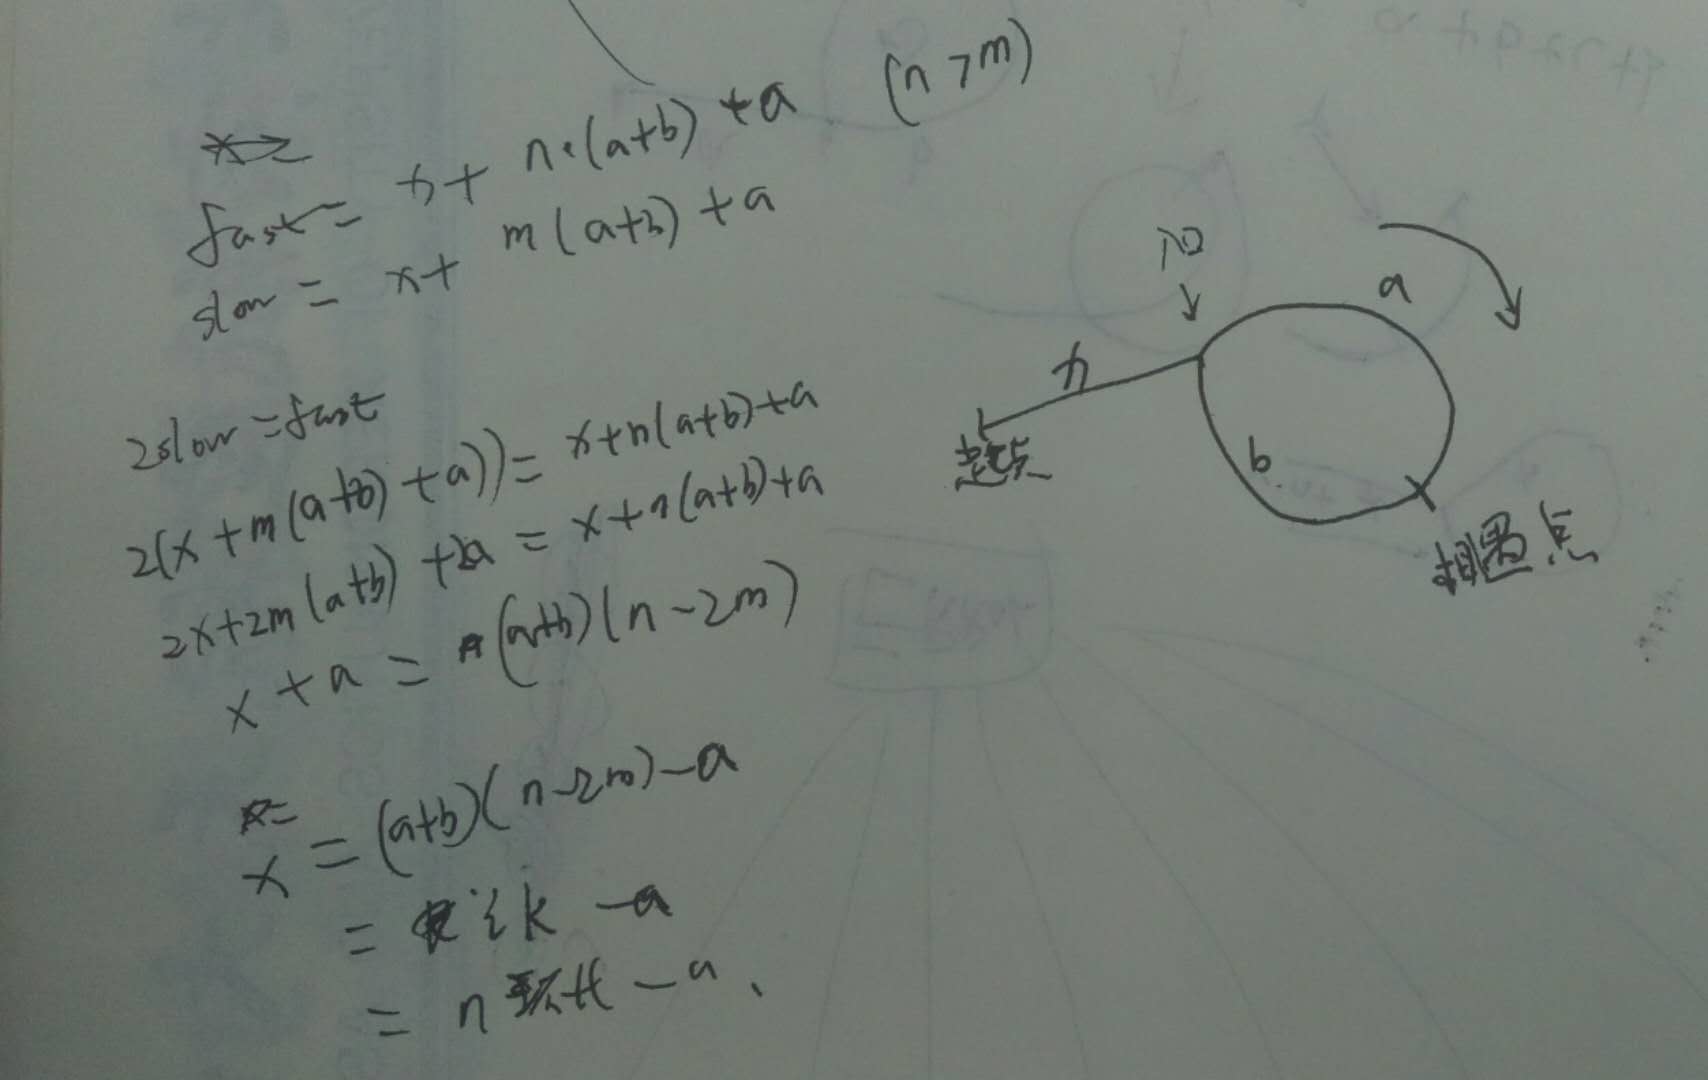 fast = x + n·(a+b) + a (n > m)
slow = x + m(a+b) + a
2slow = fast
2(x + m(a+b) + a)) = x + n(a+b) + a
2x + 2m(a+b) + 2a = x + n(a+b) + a
x + a = (a+b)(n - 2m)
x = (a+b)(n - 2m) - a
= i k - a
= n 环长 - a、
入口
a
x
b
起点
相遇点